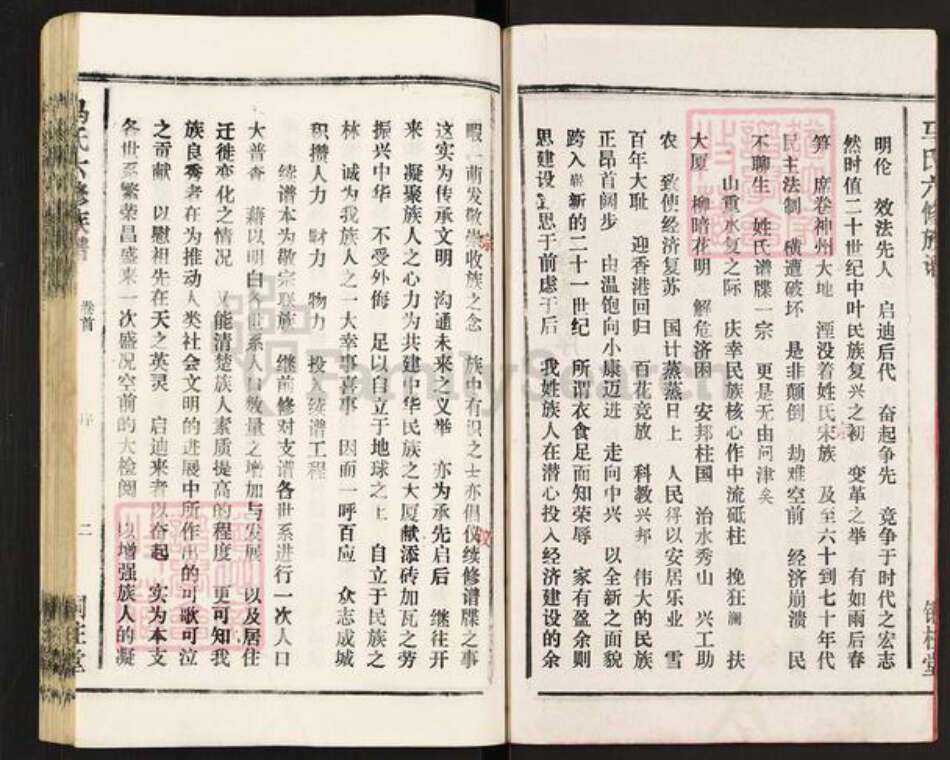 明伦 效法先人 启迪后代 奋起争先 竞争于时代之宏志
然时值二十世纪中叶民族复兴之初 变革之举 有如雨后春
笋 席卷神州大地 湮没着姓氏宋族 及至六十到七十年代
民主法制 横遭破坏 是非颠倒 劫难空前 经济崩溃 民
不聊生 姓氏谱牒一宗 更是无由问津矣
山重水复之际 庆幸民族核心作中流砥柱 挽狂澜 扶
大厦 柳暗花明 解危济困 安邦柱国 治水秀山 兴工助
农 致使经济复苏 国计蒸蒸日上 人民得以安居乐业 雪
百年大耻 迎香港回归 百花竞放 科教兴邦 伟大的民族
正昂首阔步 由温饱向小康迈进 走向中兴 以全新之面貌
跨入崭新的二十一世纪 所谓衣食足而知荣辱 家有盈余则
思建设 思于前虑于后 我姓族人在潜心投入经济建设的余
暇 萌发敬崇收族之念 族中有识之士亦俱仪续修谱牒之事
这实为传承文明 沟通未来之义举 亦为承先启后 继往开
来 凝聚族人之心力为共建中华民族之大厦献添砖加瓦之劳
振兴中华 不受外侮 足以自立于地球之上 自立于民族之
林 诚为我族人之一大幸事喜事 因而一呼百应 众志成城
积攒人力 财力 物力 投入续谱工程
续谱本为敬宗联族 继前修对支谱各世系进行一次人口
大普查 藉以明白各世系人口数量之增加与发展 以及居住
迁徙变化之情况 又能清楚族人素质提高的程度 更可知我
族良秀者在为推动人类社会文明的进展中所作出的可歌可泣
之贡献 以慰祖先在天之英灵 启迪来者以奋起 实为本支
各世系繁荣昌盛来一次盛况空前的大检阅 以增强族人的凝
马氏六修族谱
卷首
序
二